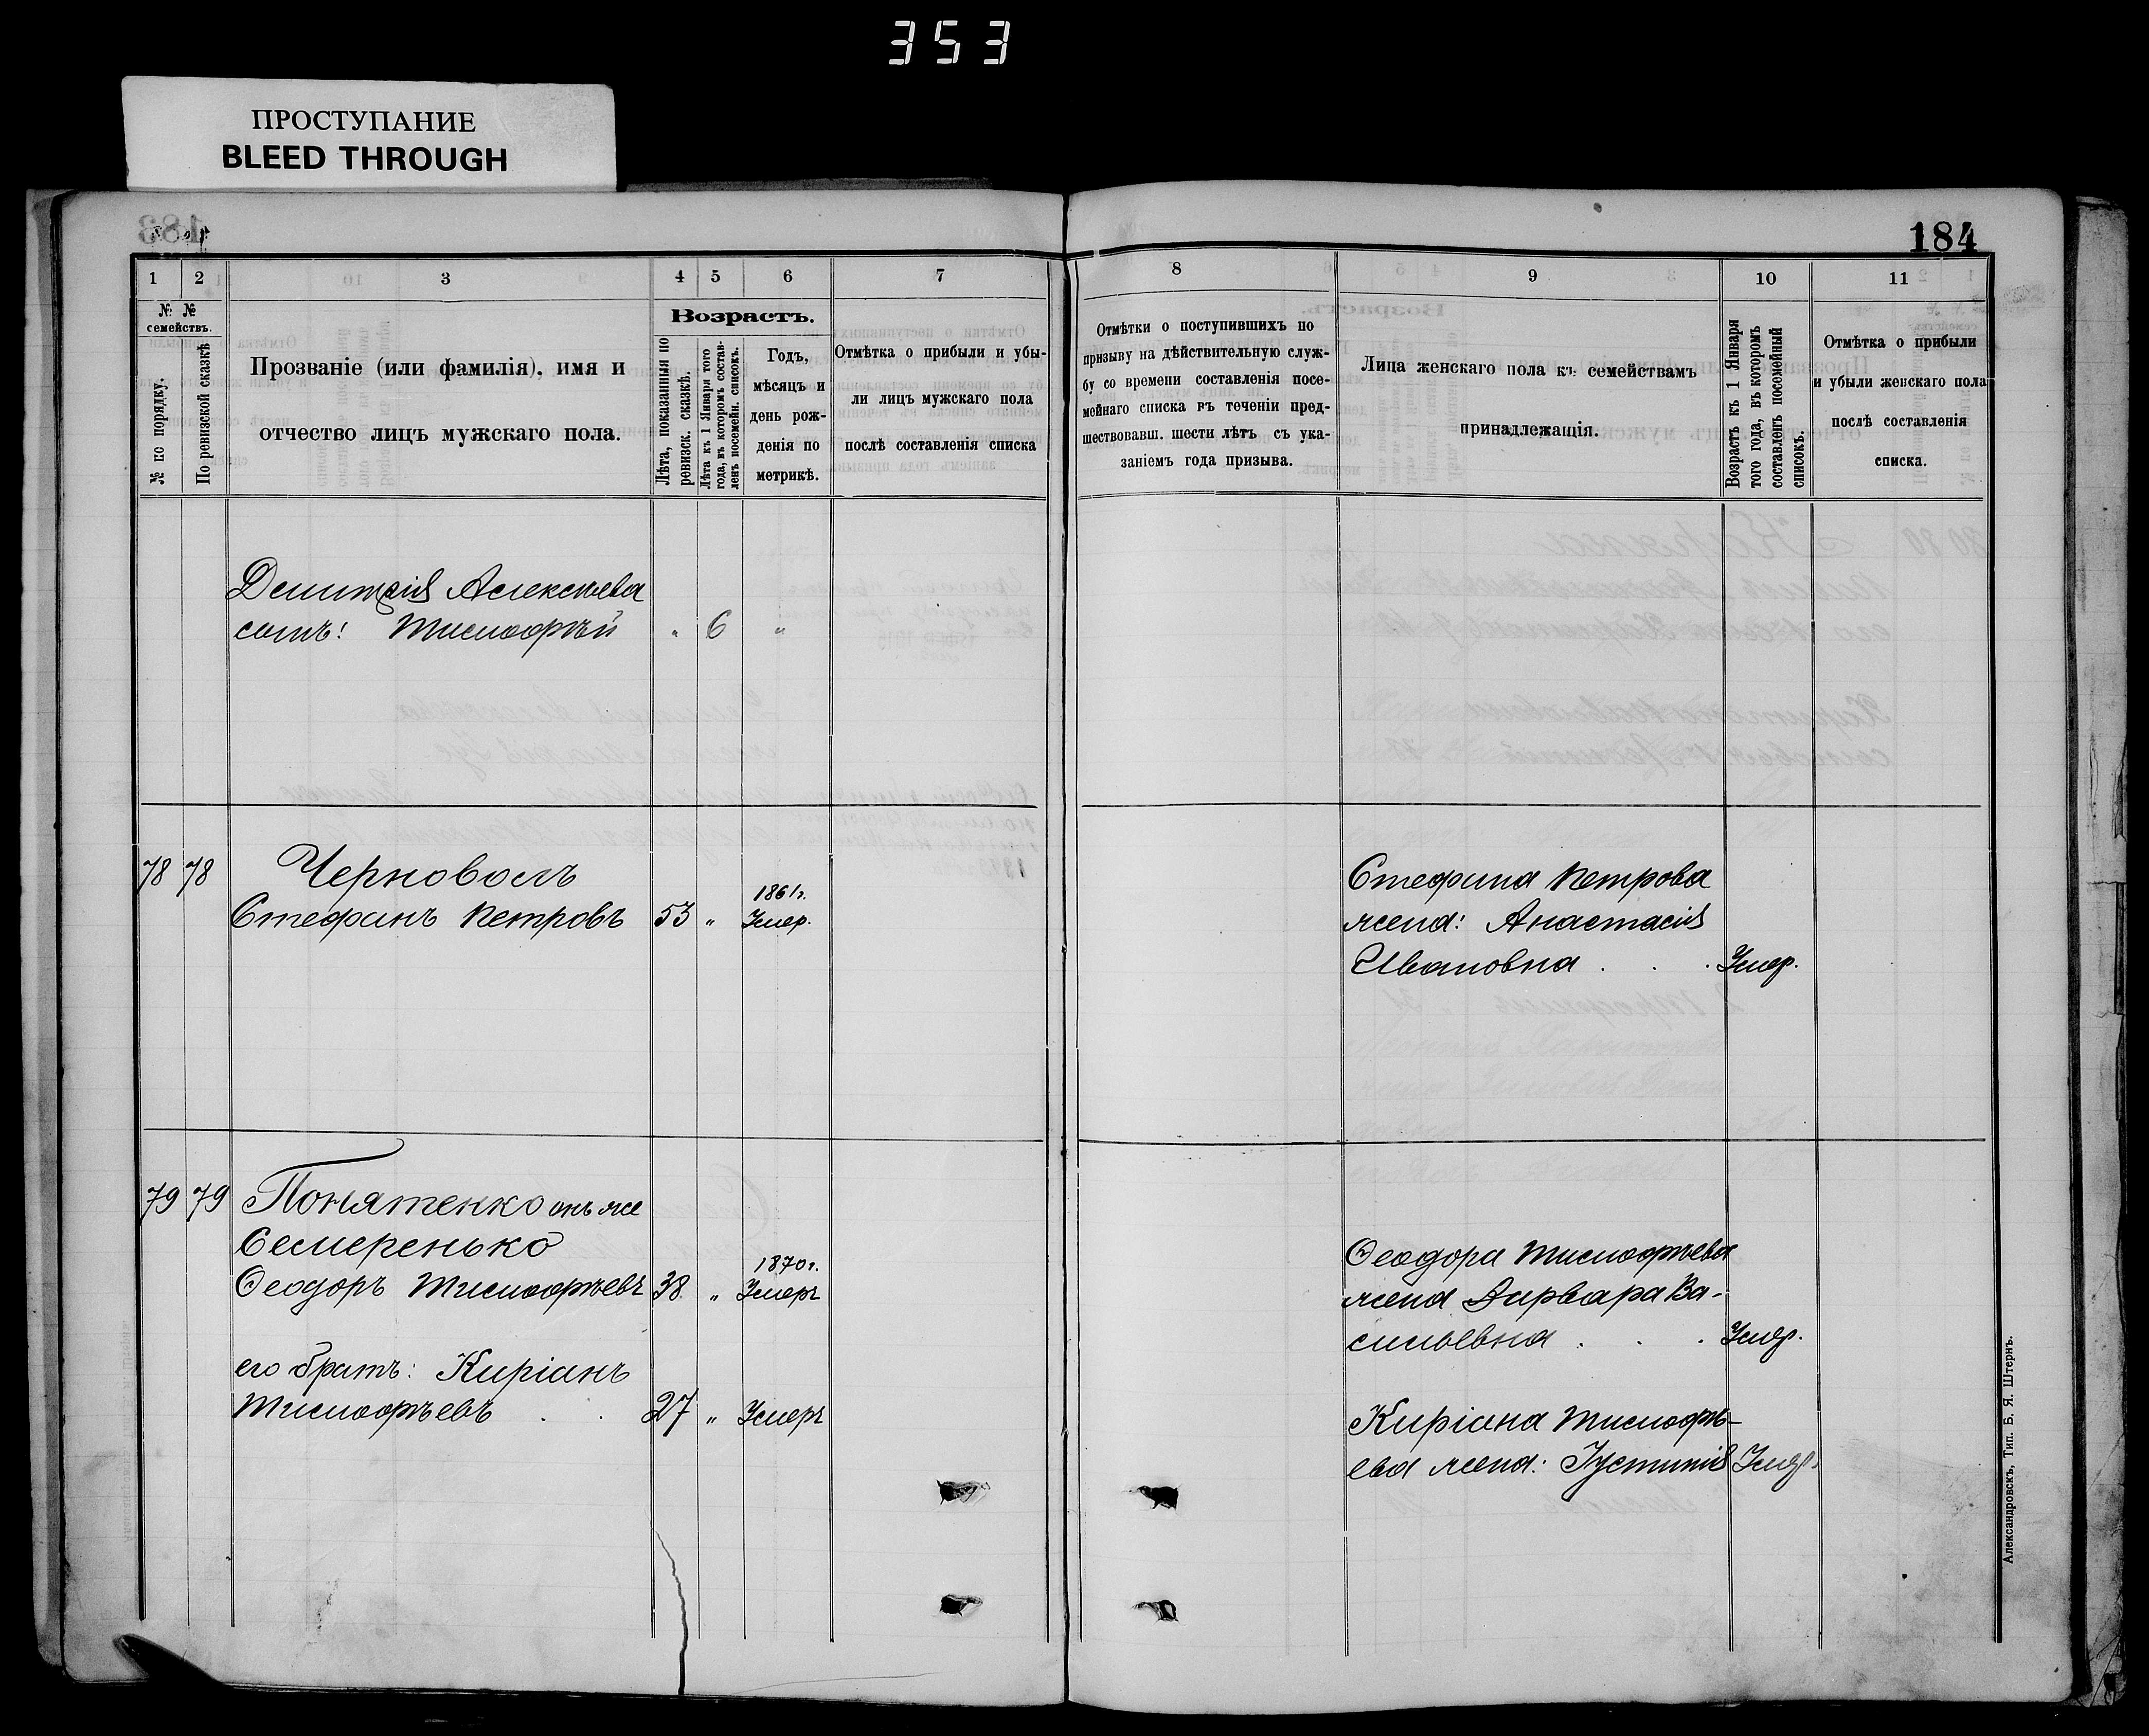 353
ПРОСТУПАНИЕ
BLEED THROUGH
184
1 2 3 4 5 6 7
№ № семействъ.
№ по порядку.
По ревизской сказкѣ
Прозваніе (или фамилія), имя и
отчество лицъ мужскаго пола.
Возрастъ.
Лѣта, показанныя по
ревизск. сказкѣ.
Лѣта къ 1 Января того
года, въ которомъ состав-
ленъ посемейн. списокъ.
Годъ,
мѣсяцъ и
день рож-
денія по
метрикѣ.
Отмѣтка о прибыли и убы-
ли лицъ мужскаго пола
послѣ составленія списка
Демитрія Алексѣева
сынъ: Тимофѣй „ 6 „
78 78 Черноволъ
1861г.
Стефанъ Петровъ 53 „ Умер.
79 79 Понятенко онъ же
Семеренько
1870г.
Ѳеодоръ Тимофѣевъ 38 „ Умеръ
его братъ: Киріанъ
Тимофѣевъ . . 27 „ Умеръ
8 9 10 11
Отмѣтки о поступившихъ по
призыву на дѣйствительную служ-
бу со времени составленія посе-
мейнаго списка въ теченіи пред-
шествовавш. шести лѣтъ съ ука-
заніемъ года призыва.
Лица женскаго пола къ семействамъ
принадлежащія.
Возрастъ къ 1 Января
того года, въ которомъ
составленъ посемейный
списокъ.
Отмѣтка о прибыли
и убыли женскаго пола
послѣ составленія
списка.
Стефана Петрова
жена: Анастасія
Ивановна . . . Умер.
Ѳеодора Тимофѣева
жена Варвара Ва-
сильевна . . . Умер.
Киріана Тимофѣ-
ева жена: Іустинія Умер.
Александровскъ, Тип. Б. Я. Штернъ.